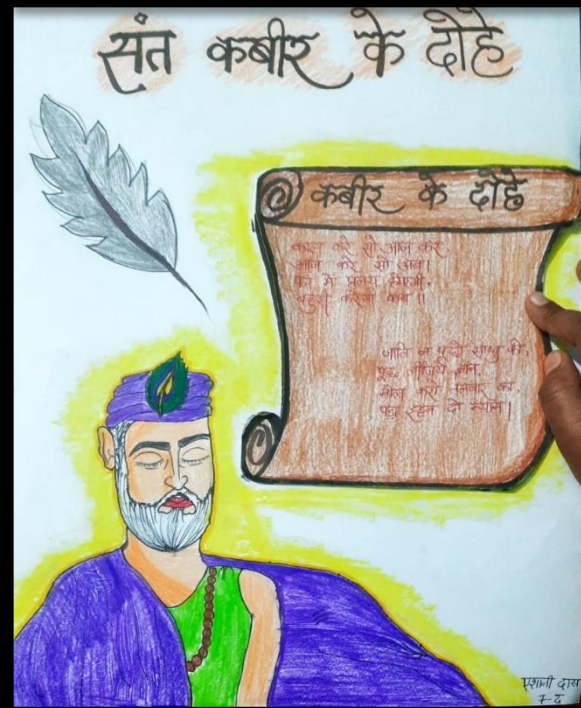 संत कबीर के दोहे
कबीर के दोहे
काल करे सो आज कर,
आज करे सो अब।
पल में प्रलय होएगी,
बहुरी करेगा कब॥
जाति न पूछो साधु की,
पूछ लीजिये ज्ञान,
मोल करो तलवार का,
पड़ा रहन दो म्यान।
7-द